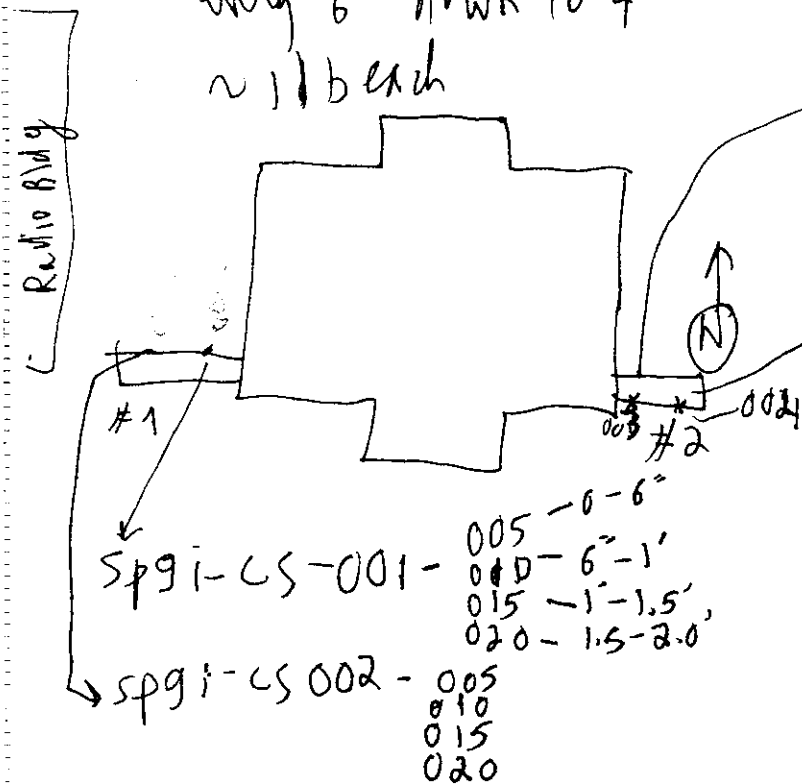 every 6" down to 4
~ 1 lb each
Radio Bldg
N
#1
003
#2
004
spgi-CS-001 - 005 - 0-6"
010 - 6"-1'
015 - 1'-1.5'
020 - 1.5-2.0'
spgi-CS 002 - 005
010
015
020